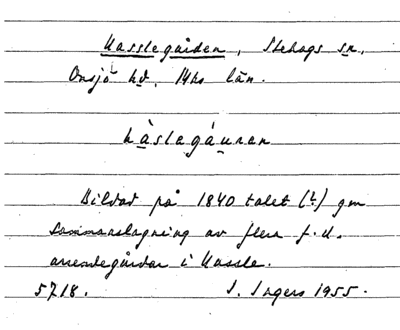 Kasslegården, Stehags sn.
Onsjö hd. Mhs län.
kàslegá̱u̱nen
Bildad på 1840 talet (?) gm
sammanslagning av flera f.d.
arrendegårdar i Kassle.
5718. I. Ingers 1955.